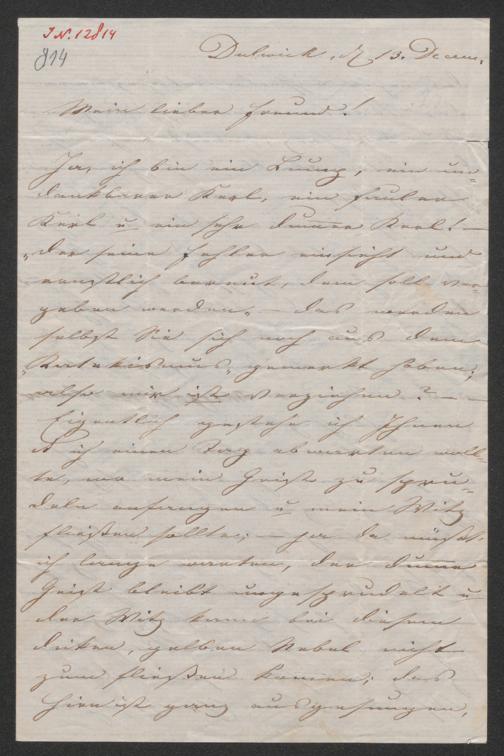 I.N. 12814
814
Dulwich, d 13. Decem.
Mein lieber Freund!
Ja, ich bin ein Lump, ein un=
dankbarer Kerl, ein fauler
Kerl u ein sehr dummer Kerl! —
„der seine Fehler einsieht und
ernstlich bereut, dem soll ver=
geben werden„ — das werden
selbst Sie sich noch aus dem
„Katekismus„ gemerkt haben;
also mir ist verziehen? — —
Eigentlich gestehe ich Ihnen
ß ich einen Tag abwarten woll=
te, wo mein Geist zu spru=
deln anfangen u mein Witz
fließen sollte; — ja da müßt
ich lange warten, der dumme
Geist bleibt ungesprudelt u
der Witz kann bei diesem
dicken, gelben Nebel nicht
zum fließen kommen; das
Hirn ist ganz ausgesungen,